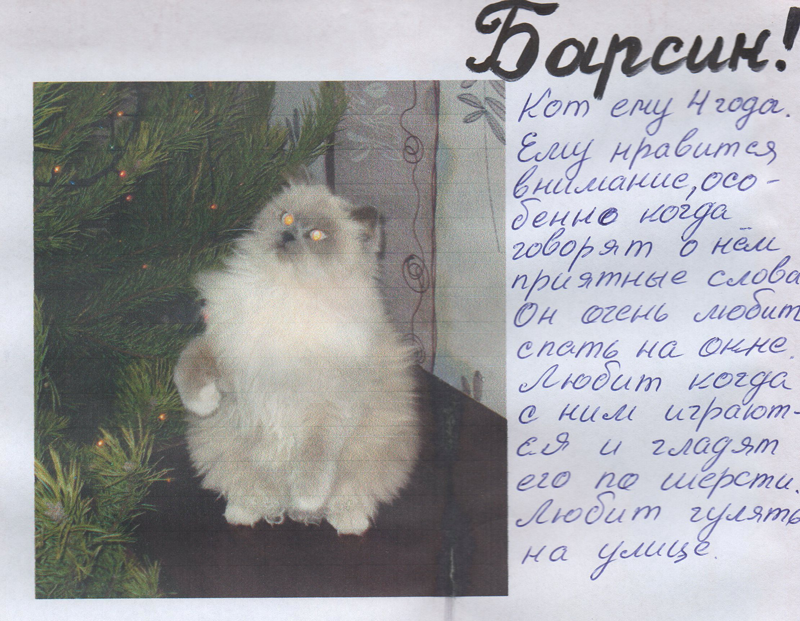 Барсин!
Кот ему 4 года.
Ему нравится
внимание, осо-
бенно когда
говорят о нём
приятные слова
Он очень любит
спать на окне.
Любит когда
с ним играют-
ся и гладят
его по шерсти.
Любит гулять
на улице.